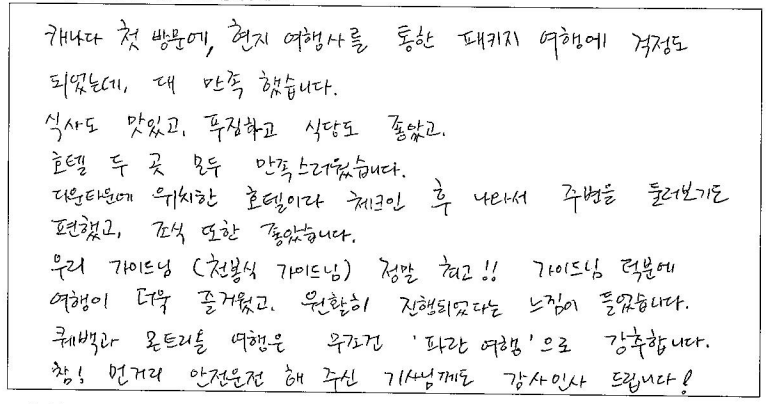 캐나다 첫 방문에, 현지 여행사를 통한 패키지 여행에 걱정도
되었는데, 대 만족 했습니다.
식사도 맛있고, 푸짐하고 식당도 좋았고,
호텔 두 곳 모두 만족스러웠습니다.
다운타운에 위치한 호텔이라 체크인 후 나와서 주변을 둘러보기도
편했고, 조식 또한 좋았습니다.
우리 가이드님 (천봉식 가이드님) 정말 최고!! 가이드님 덕분에
여행이 더욱 즐거웠고, 원활히 진행되었다는 느낌이 들었습니다.
퀘백과 몬트리올 여행은 무조건 '파란여행'으로 강추합니다.
참! 먼거리 안전운전 해 주신 기사님께도 감사인사 드립니다!